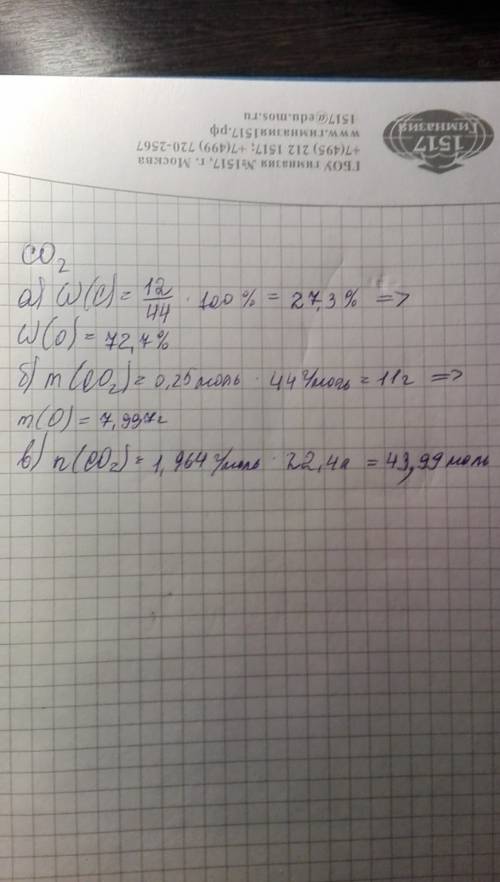 ГБОУ гимназия №1517, г. Москва
+7(495) 212 1517; +7(499) 720-2567
www.гимназия1517.рф
1517@edu.mos.ru
1517
Гимназия
CO₂
а) W(C) = 12/44 · 100% = 27,3% =>
W(O) = 72,7%
б) m(CO₂) = 0,25 моль · 44 г/моль = 11г =>
m(O) = 7,997г
в) n(CO₂) = 1,964 г/моль · 22,4л = 43,99 моль